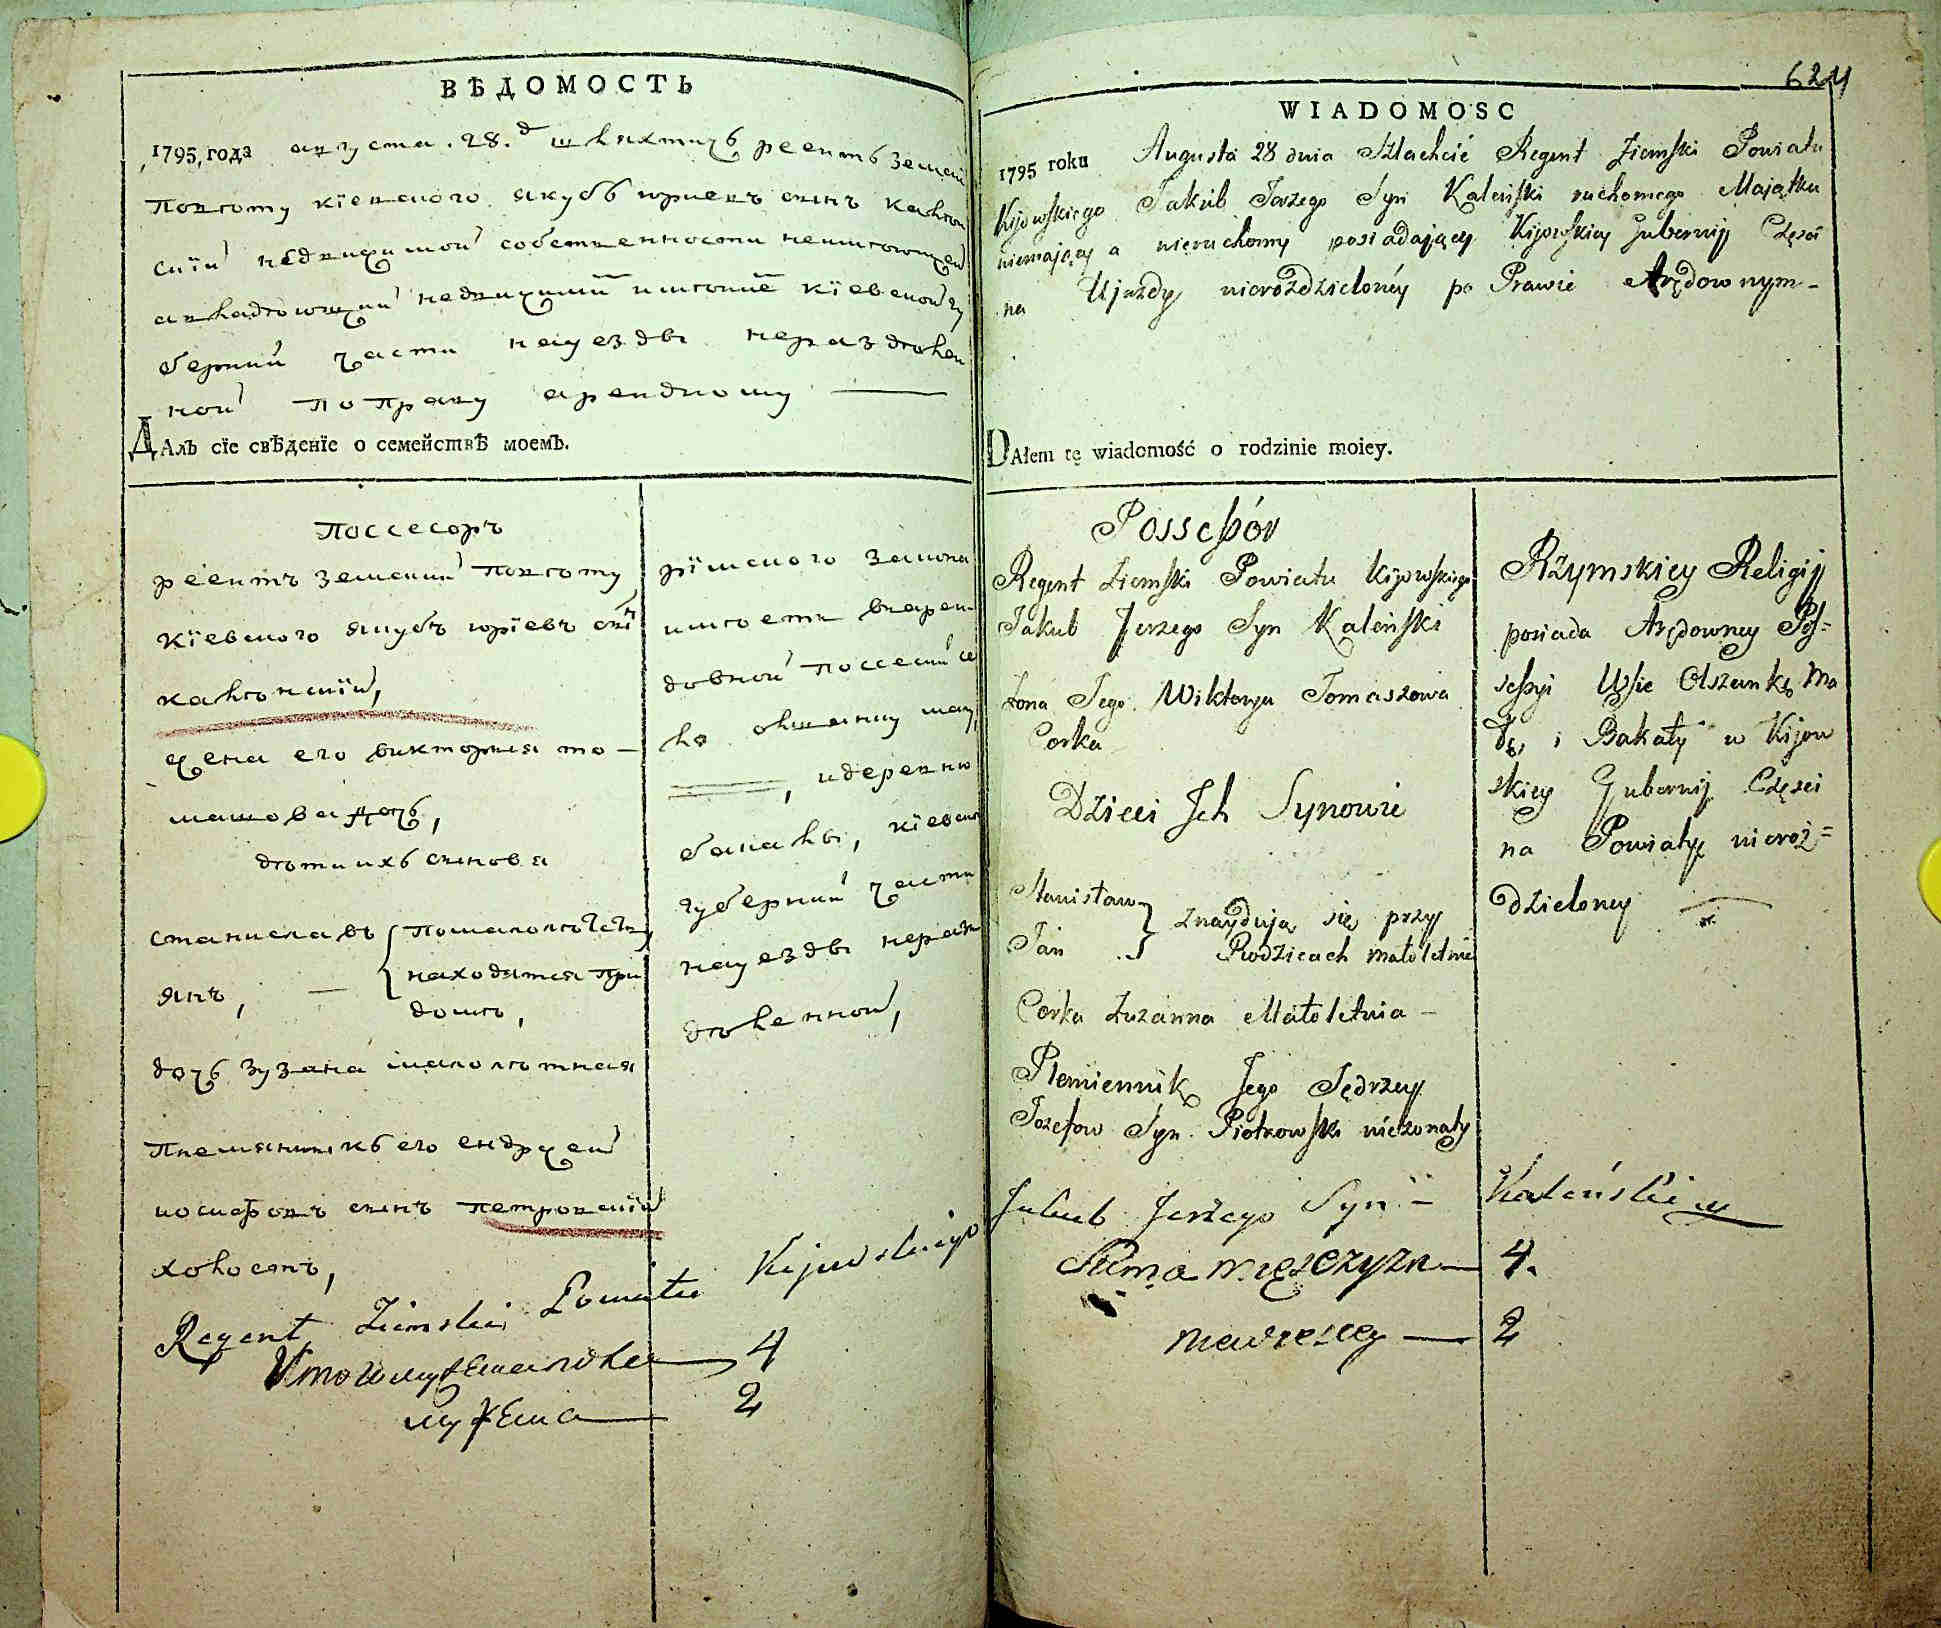 ВѢДОМОСТЬ
1795, года августа 28. д шляхтичь реентъ земскій
повѣту кіевского якубъ юрьевъ сынъ калѣн
скій недвижимой собственности неимѣющей
авладѣющий недвижимий имѣниемъ кіевской гу
берний части науезды нераздѣлен
ной по праву арендному
ДАлЪ сїе свѣденїе о семействѣ моемЪ.
поссесоръ
реентъ земский повѣту
кіевского якубъ юріевъ снъ
калѣнскій,
жена его викторыя то-
машова дочь,
дѣти ихъ сыновя
станиславъ
янъ,
помалолѣтству
находятся при
домѣ,
дочь зузана малолѣтная
племянникъ его ендржей
иосифовъ сынъ петровскій
холостъ,
римского закона
имѣетъ варен-
довной поссесий се
ло олшанку малу,
и деревню
бакалы, кіевской
губерний части
науезды нераз
дѣленной,
Regent Ziemski Powiatu Kijowskiego
Итого мужеска пола 4
2
624
WIADOMOSC
1795 roku Augusta 28 dnia Szlachcić Regent Ziemski Powiatu
Kijowskiego Jakub Jerzego Syn Kaleński ruchomego Majątku
niemający a nieruchomy posiadający Kijowskiey Gubernij Części
na Ujazdy nierozdzieloney po Prawie Arędownym-
DAłem tę wiadomość o rodzinie moiey.
Possessor
Regent Ziemski Powiatu Kijowskiego
Jakub Jerzego Syn Kaleński
Zona Jego Wiktorya Tomaszowa
Corka
Dzieci Jch Synowie
Stanisław
Jan
znayduią się przy
Rodzicach małoletnie
Corka Zuzanna Małoletnia -
Plemiennik Jego Jędrzey
Jozefow Syn Piotrowski nieżonaty
Rzymskiey Religij
posiada Arędowney Pos=
sessyi Wsie Olszankę Ma
łą, i Bakały w Kijow
skiey Gubernij Części
na Powiaty nieroz=
dzieloney
Jakub Jerzego Syn - Kaleński
Suma męsczyzn 4.
niewiescey 2